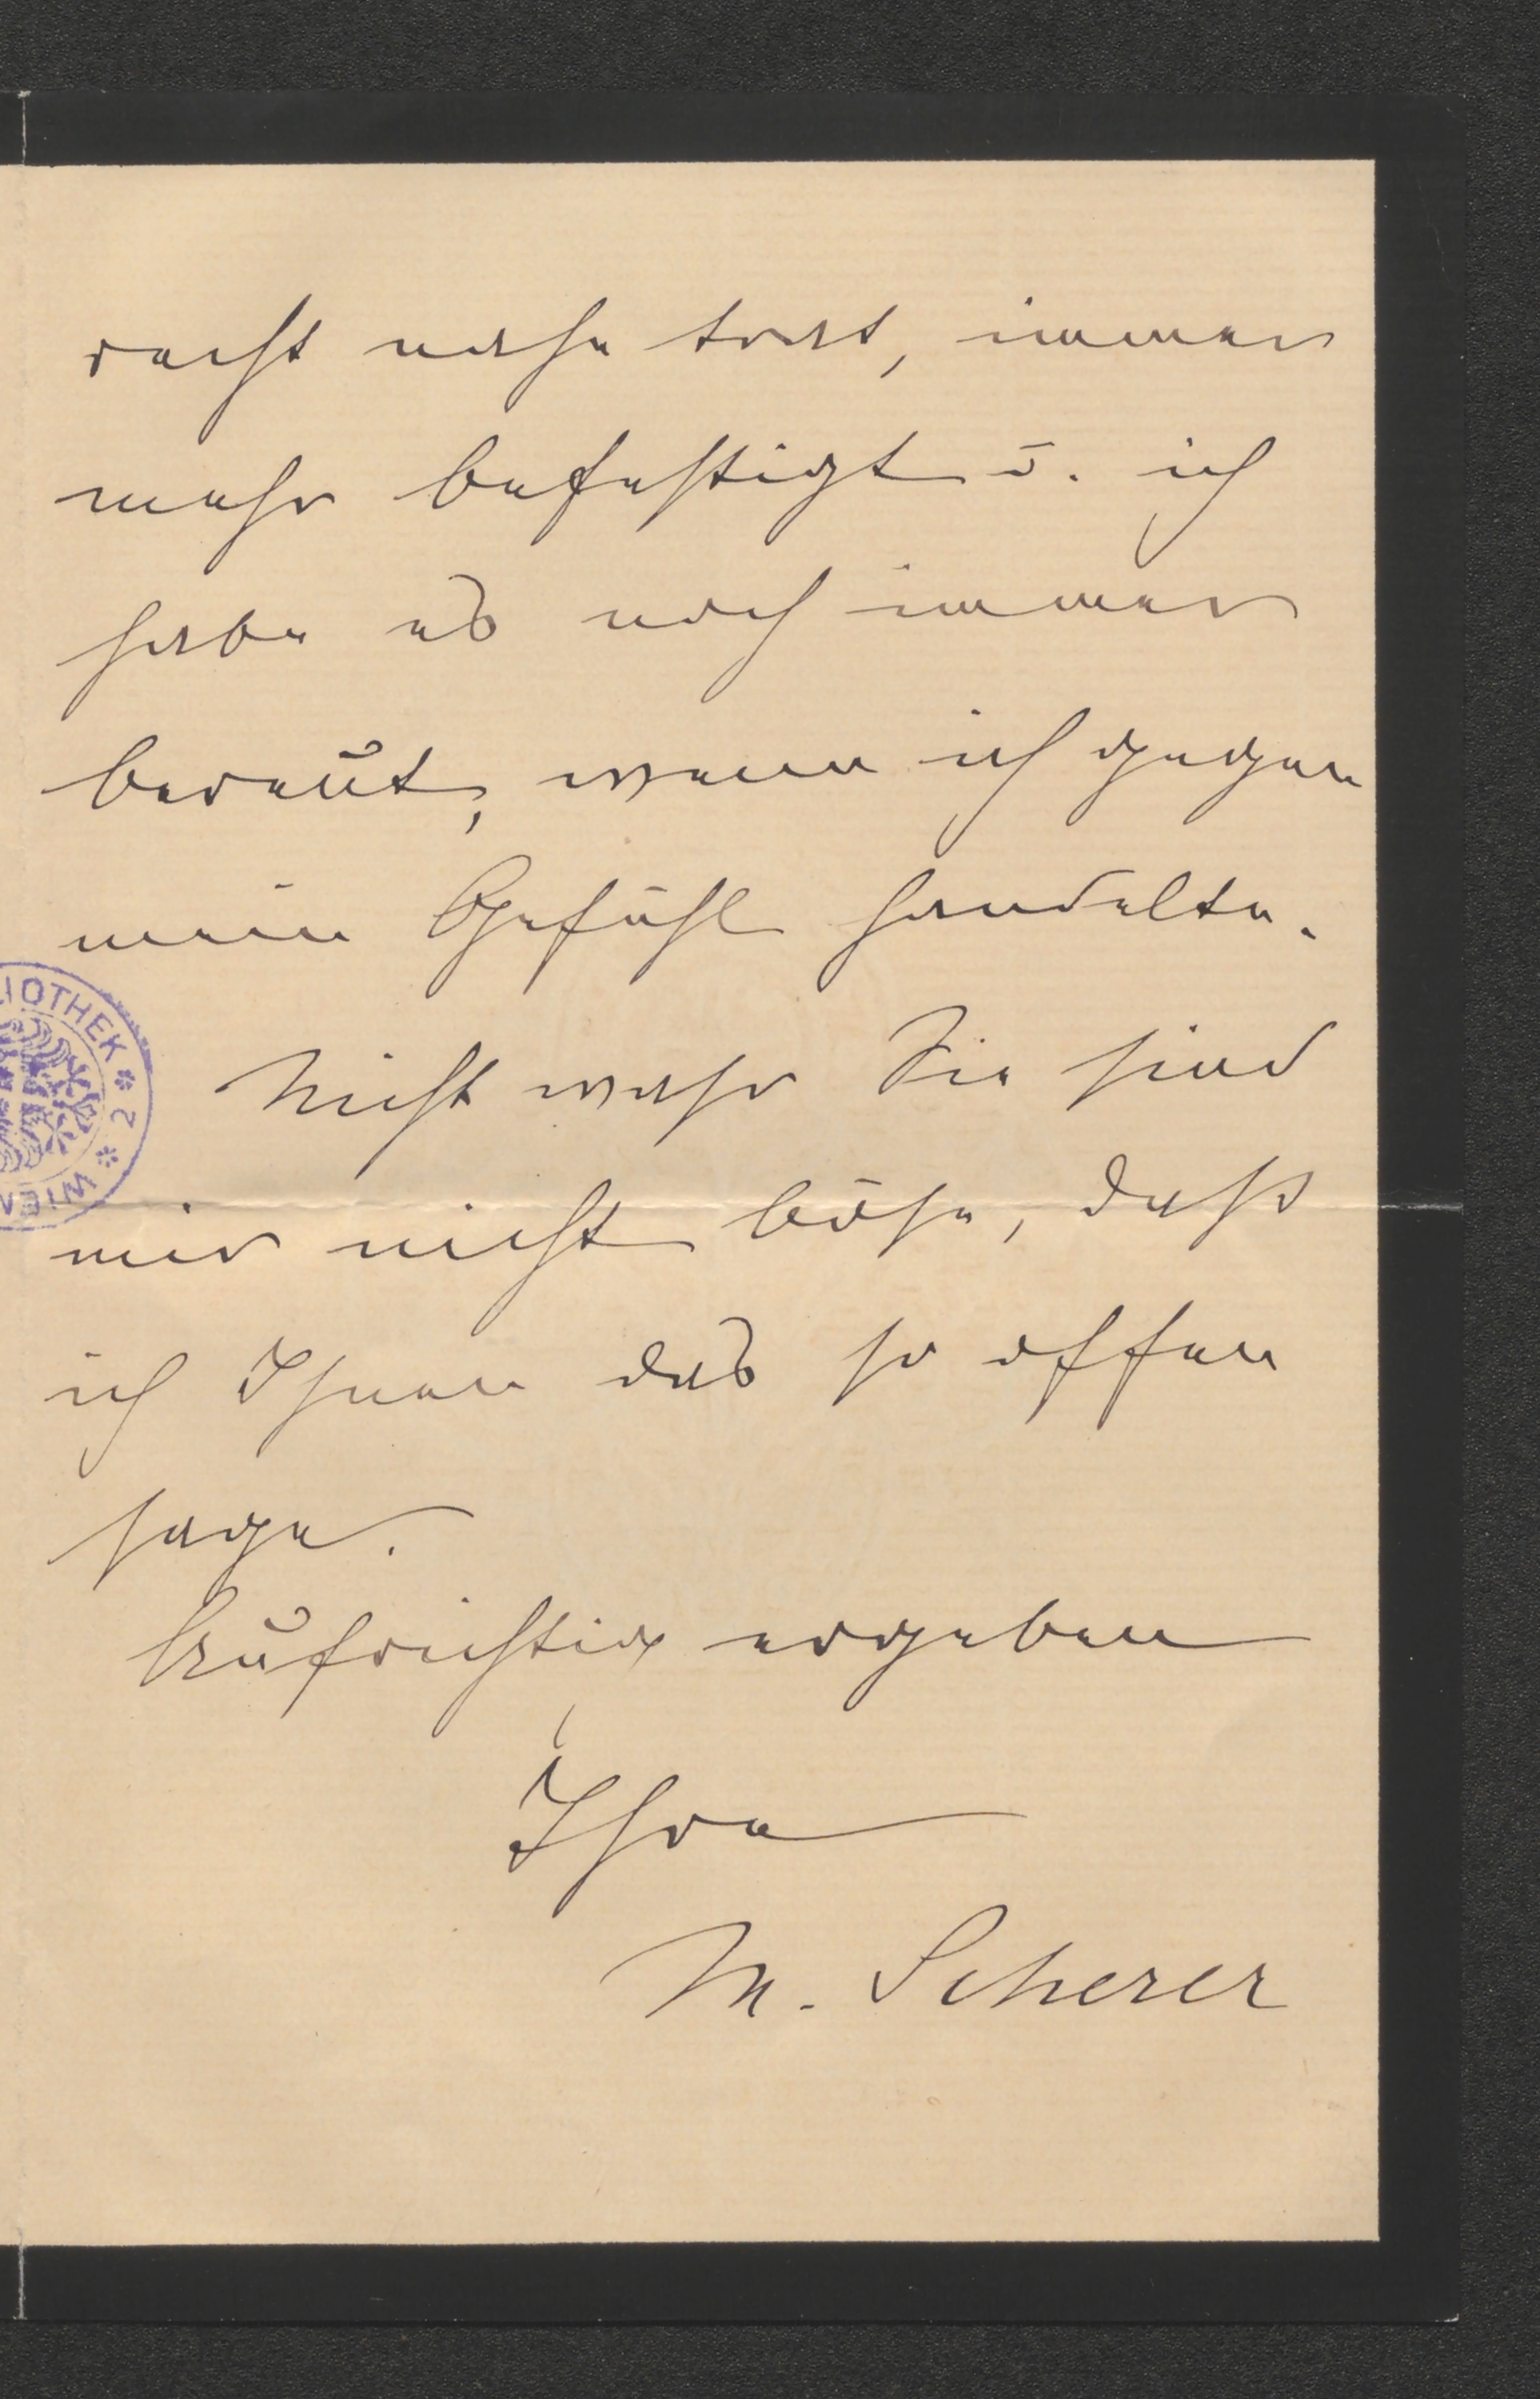 recht nahe trat, immer
mehr befestigt u. ich
habe es noch immer
bereut, wenn ich gegen
mein Gefühl handelte.
Nicht wahr Sie sind
mir nicht böse, daß
ich Ihnen das so offen
sage.
Aufrichtig ergeben
Ihre
M. Scherer
LIOTHEK * 2 * WIEN